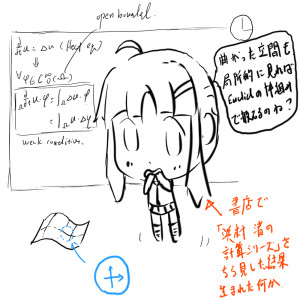 open bounded.
∂/∂t u = Δu (Heat eq)
⇓
∀φ∈C₀^∞(Ω)
d/dt ∫_Ω u・φ
= ∫_Ω u・Δφ
weak condition.
曲がった空間も
局所的に見れば
Euclidの枠組み
で扱えるのね?
書店で
「浜村渚の
計算シリーズ」を
ちら見した結果
生まれた何か